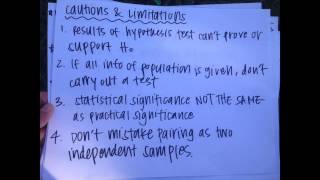 Cautions & Limitations
1. results of hypothesis test can't prove or
support H₀
2. If all info of population is given, don't
carry out a test
3. statistical significance NOT THE SAME
as practical significance
4. Don't mistake pairing as two
independent samples.